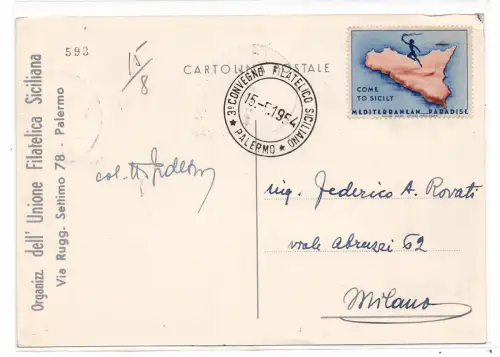 593
15/8
CARTOLINA POSTALE
3º CONVEGNO FILATELICO SICILIANO
15.5.1954
★ PALERMO ★
COME
TO SICILY
MEDITERRANEAN PARADISE
Organizz. dell' Unione Filatelica Siciliana
Via Rugg. Settimo 78 - Palermo
col.
ing. Federico A. Rovati
viale Abruzzi 62
Milano